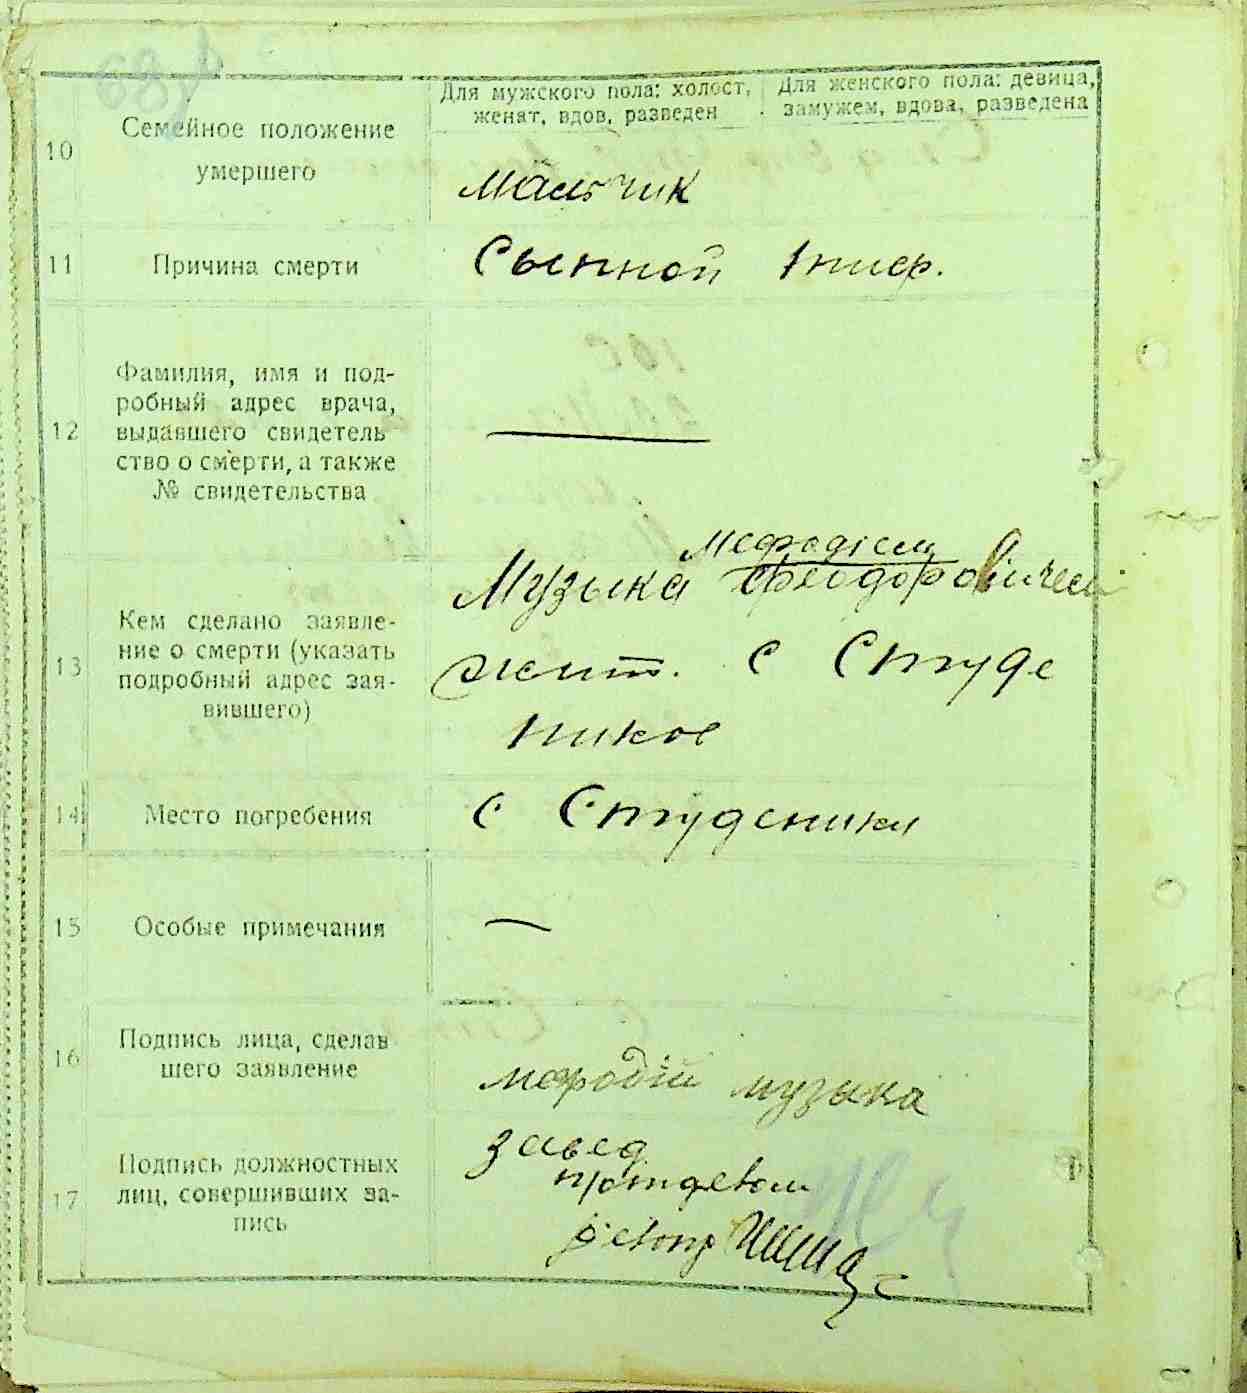 Для мужского пола: холост,
женат, вдов, разведен
Для женского пола: девица,
замужем, вдова, разведена
10
Семейное положение
умершего
мальчик
11
Причина смерти
Сыпной тиф.
12
Фамилия, имя и под-
робный адрес врача,
выдавшего свидетель
ство о смерти, а также
№ свидетельства
13
Кем сделано заявле-
ние о смерти (указать
подробный адрес зая-
вившего)
Мефодіем
Музыка Феодоровичем
жит. с Студе
никое
14
Место погребения
с Студеники
15
Особые примечания
16
Подпись лица, сделав
шего заявление
мефодій музыка
17
Подпись должностных
лиц, совершивших за-
пись
завед